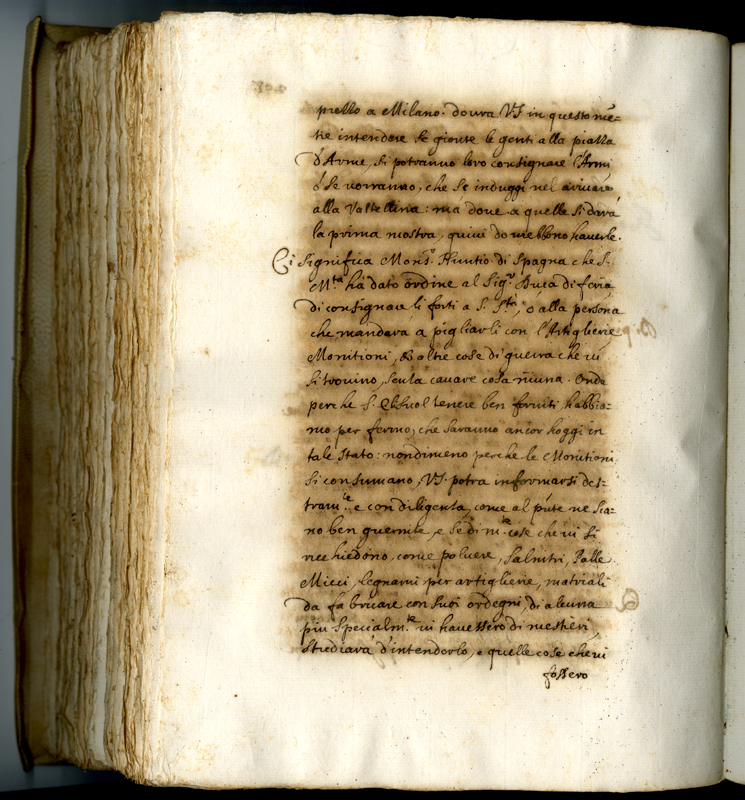 presso a Milano. dovrà VS in questo mē=
tre intendere se gionte le genti alla piazza
d'Arme, si potranno loro consignare l'Armi
ò se vorranno, che se induggi nel arrivare
alla Valtellina: mà dove a quelle si darà
la prima mostra, quivi dovrebbono haverle.
Ci significa Mons.r Nuntio di Spagna che S.
M.tà hà dato ordine al Sig.r Duca di feria
di consignare li forti a S. S.tà, ò alla persona
che mandarà a pigliarli con l'Artiglierie
Monitioni, & altre cose di guerra che vi
si trovino, senza cavare cosa niuna. Onde
perche S. Ecc. suol tenere ben forniti, habbia=
mo per fermo, che saranno ancor hoggi in
tale stato: nondimeno perche le Monitioni
si consumano, VS. potrà informarsi des=
tram.te e con diligenza, come al pñte ne sia=
no ben guernite, e se di m.te cose che vi si
ricchiedono, come polvere, Salnitri, Palle
Micci, legnami per artiglierie, matriali
da fabricare con suoi ordegni, di alcuna
più specialm.te vi havessero di mestieri,
studiarà d'intenderlo, e quelle cose che vi
fossero